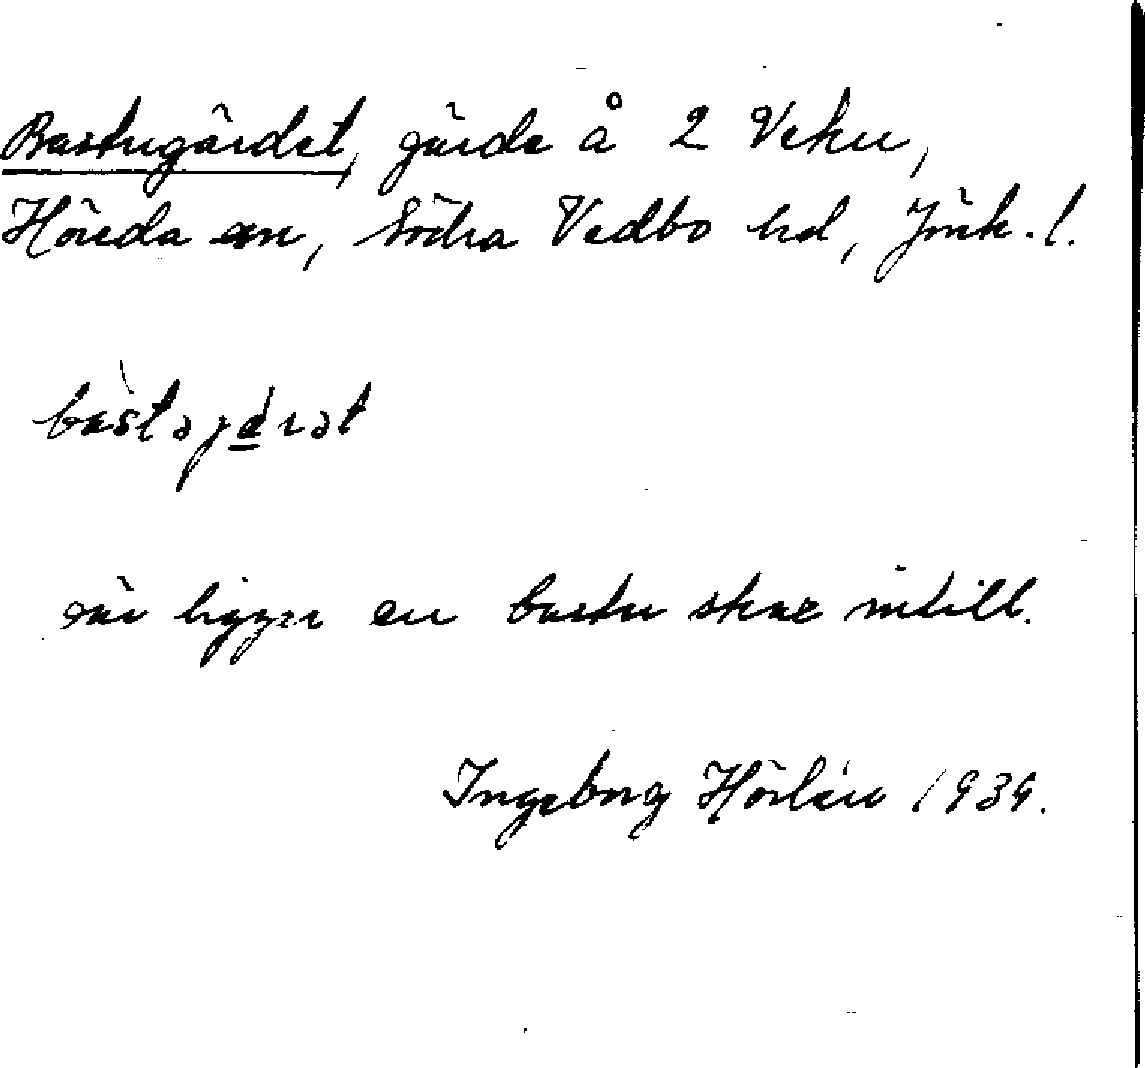 Bastugärdet, gärde å 2 Veku,
Höreda sn, Södra Vedbo hd, Jönk. l.
bastəjärət
där ligger en bastu strax intill.
Ingeborg Hörlén 1939.